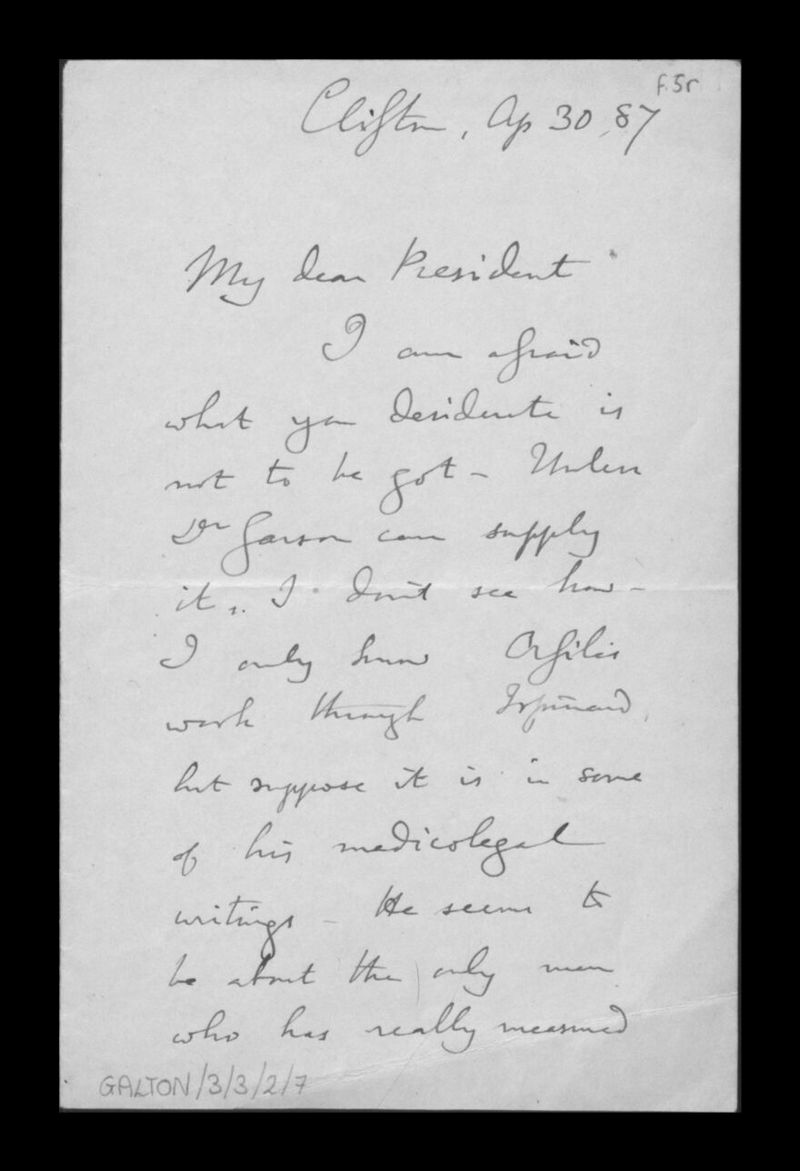 f.5r
Clifton, Ap 30, 87
My dear President
I am afraid
what you desiderate is
not to be got - Unless
Dr Garson can supply
it, I don't see how -
I only know Orfila's
work through Topinard,
but suppose it is in some
of his medicolegal
writings - He seems to
be about the only man
who has really measured
GALTON/3/3/2/7